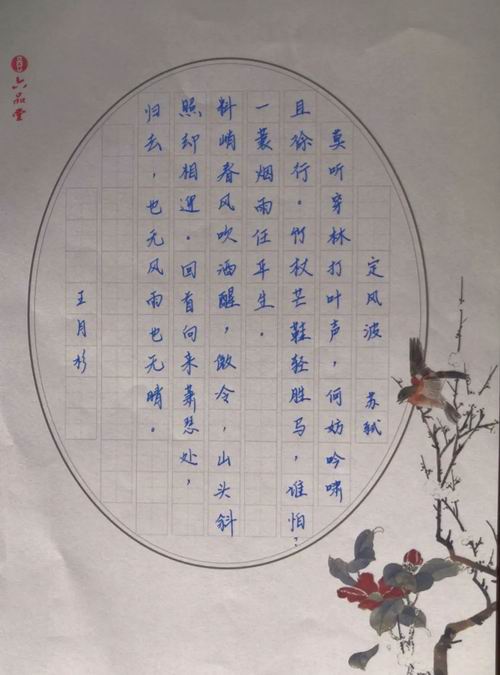 六品堂
定风波 苏轼
莫听穿林打叶声，何妨吟啸
且徐行。竹杖芒鞋轻胜马，谁怕？
一蓑烟雨任平生。
料峭春风吹酒醒，微冷，山头斜
照却相迎。回首向来萧瑟处，
归去，也无风雨也无晴。
王月杉